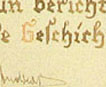 un bericht
e Geschich